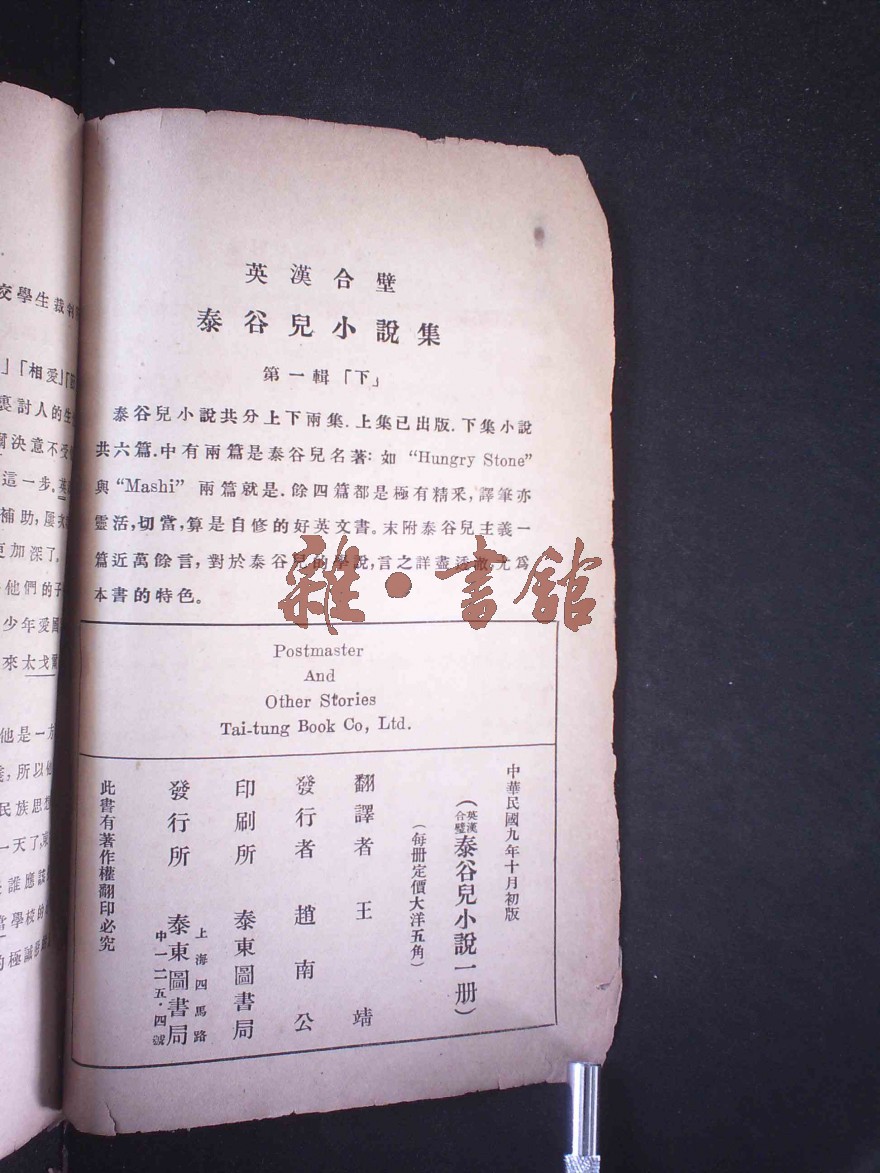 英漢合璧
泰谷兒小說集
第一輯「下」
泰谷兒小說共分上下兩集.上集已出版.下集小說
共六篇.中有兩篇是泰谷兒名著:如 “Hungry Stone”
與 “Mashi” 兩篇就是.餘四篇都是極有精釆,譯筆亦
靈活,切當,算是自修的好英文書。末附泰谷兒主義一
篇近萬餘言,對於泰谷兒的學說,言之詳盡透澈,尤爲
本書的特色。
Postmaster
And
Other Stories
Tai-tung Book Co, Ltd.
中華民國九年十月初版
(英漢合璧泰谷兒小說一册)
(每册定價大洋五角)
翻譯者 王靖
發行者 趙南公
印刷所 泰東圖書局
上海四馬路
發行所 泰東圖書局
中一二五·四號
此書有著作權翻印必究
交學生裁判
」「相愛」
裏討人的生
決意不受
這一步.英
補助,屢次
更加深了。
他們的子
少年愛國
來太戈爾
他是一方
所以他
民族思想
一天了,
誰應該
學校的
的極誠
雜·書館